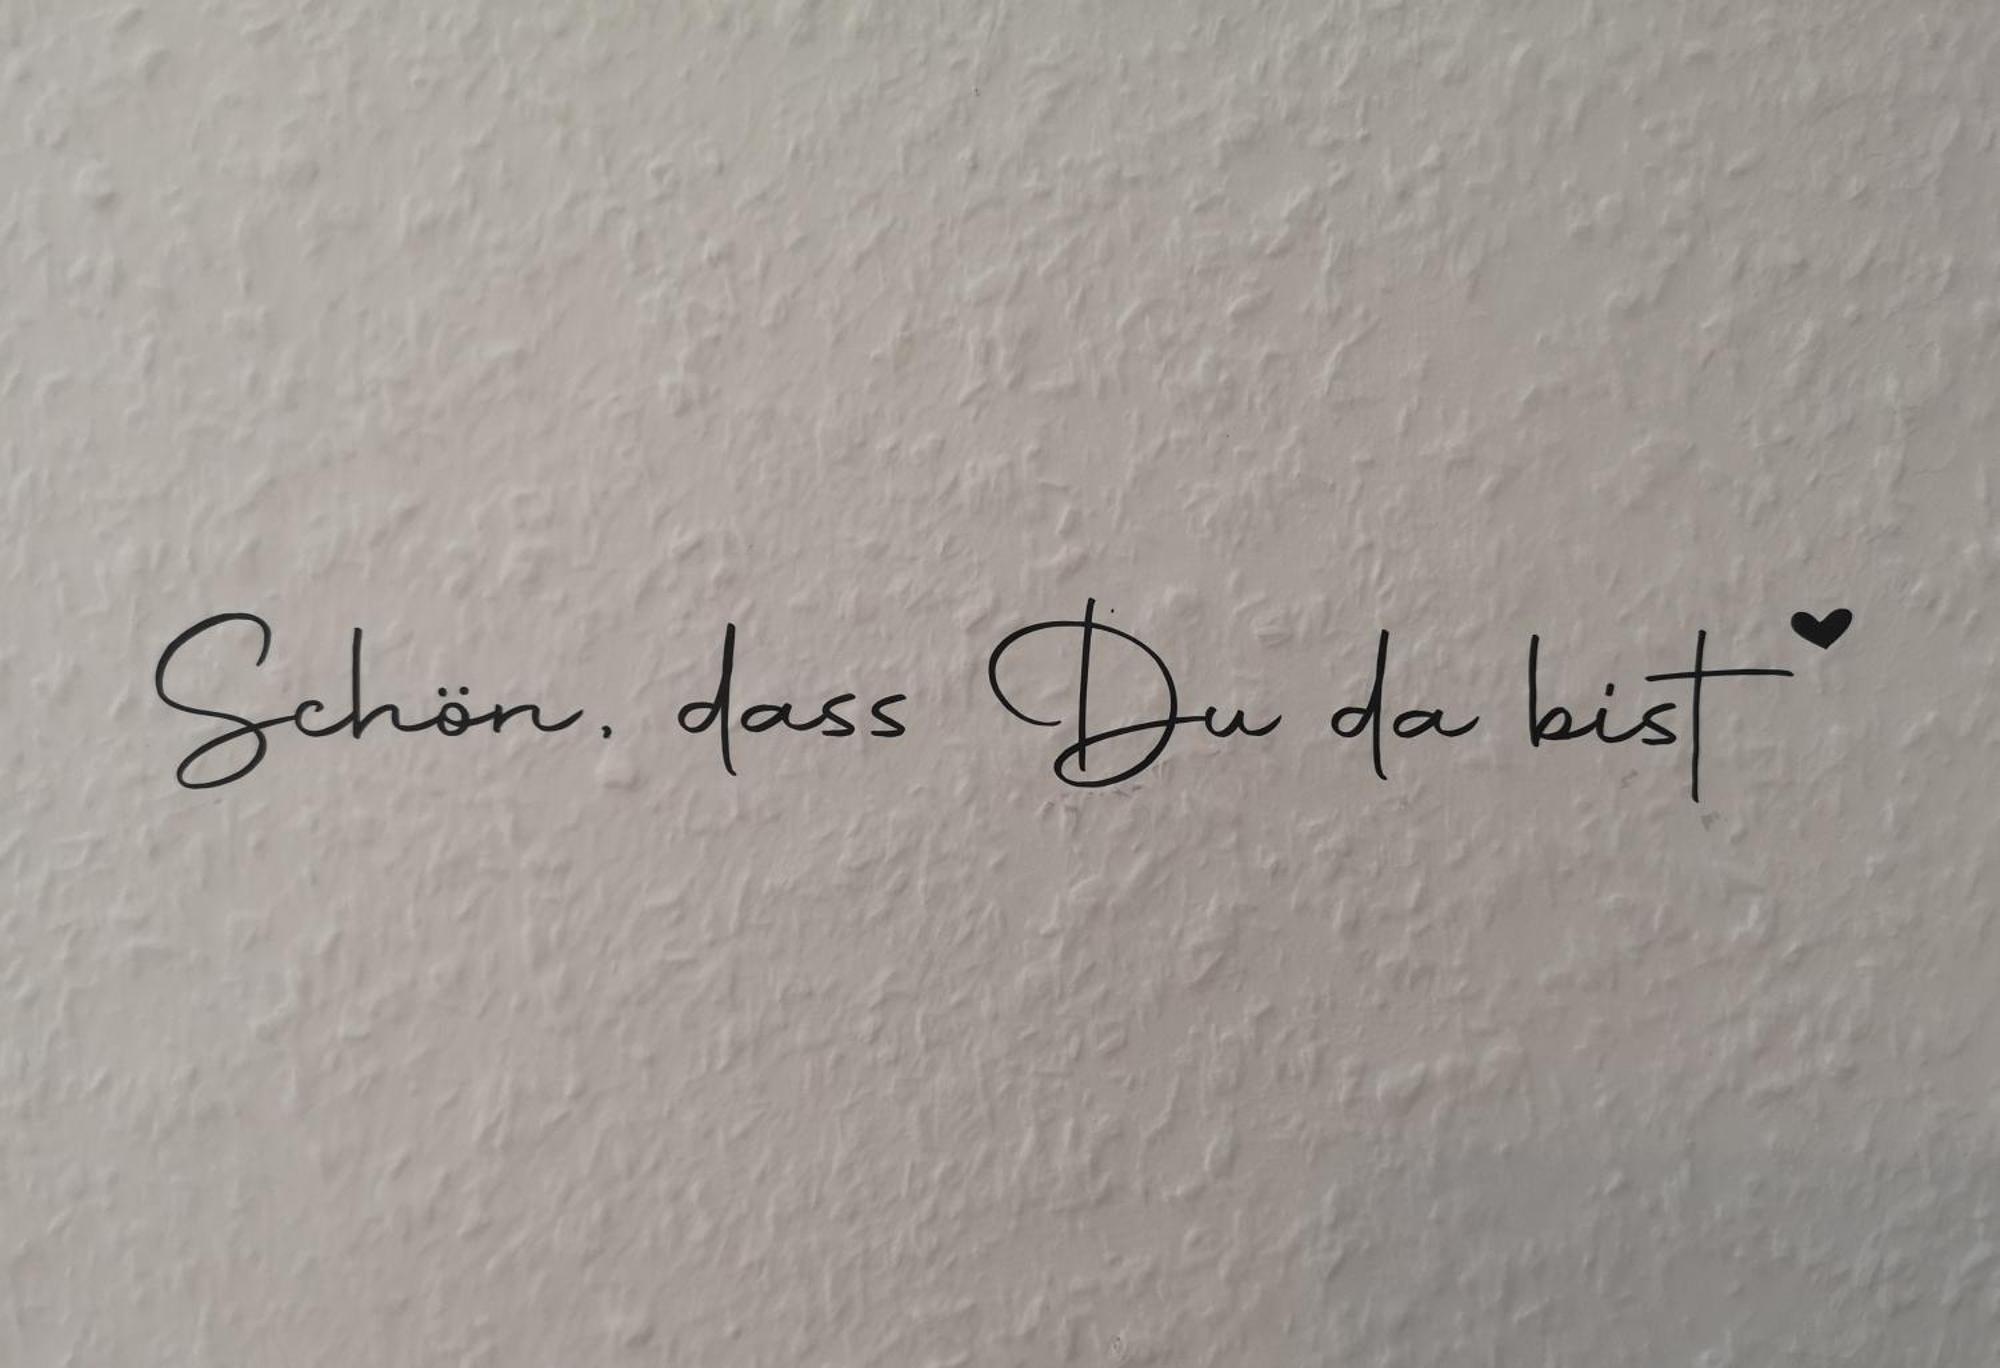 Schön, dass Du da bist